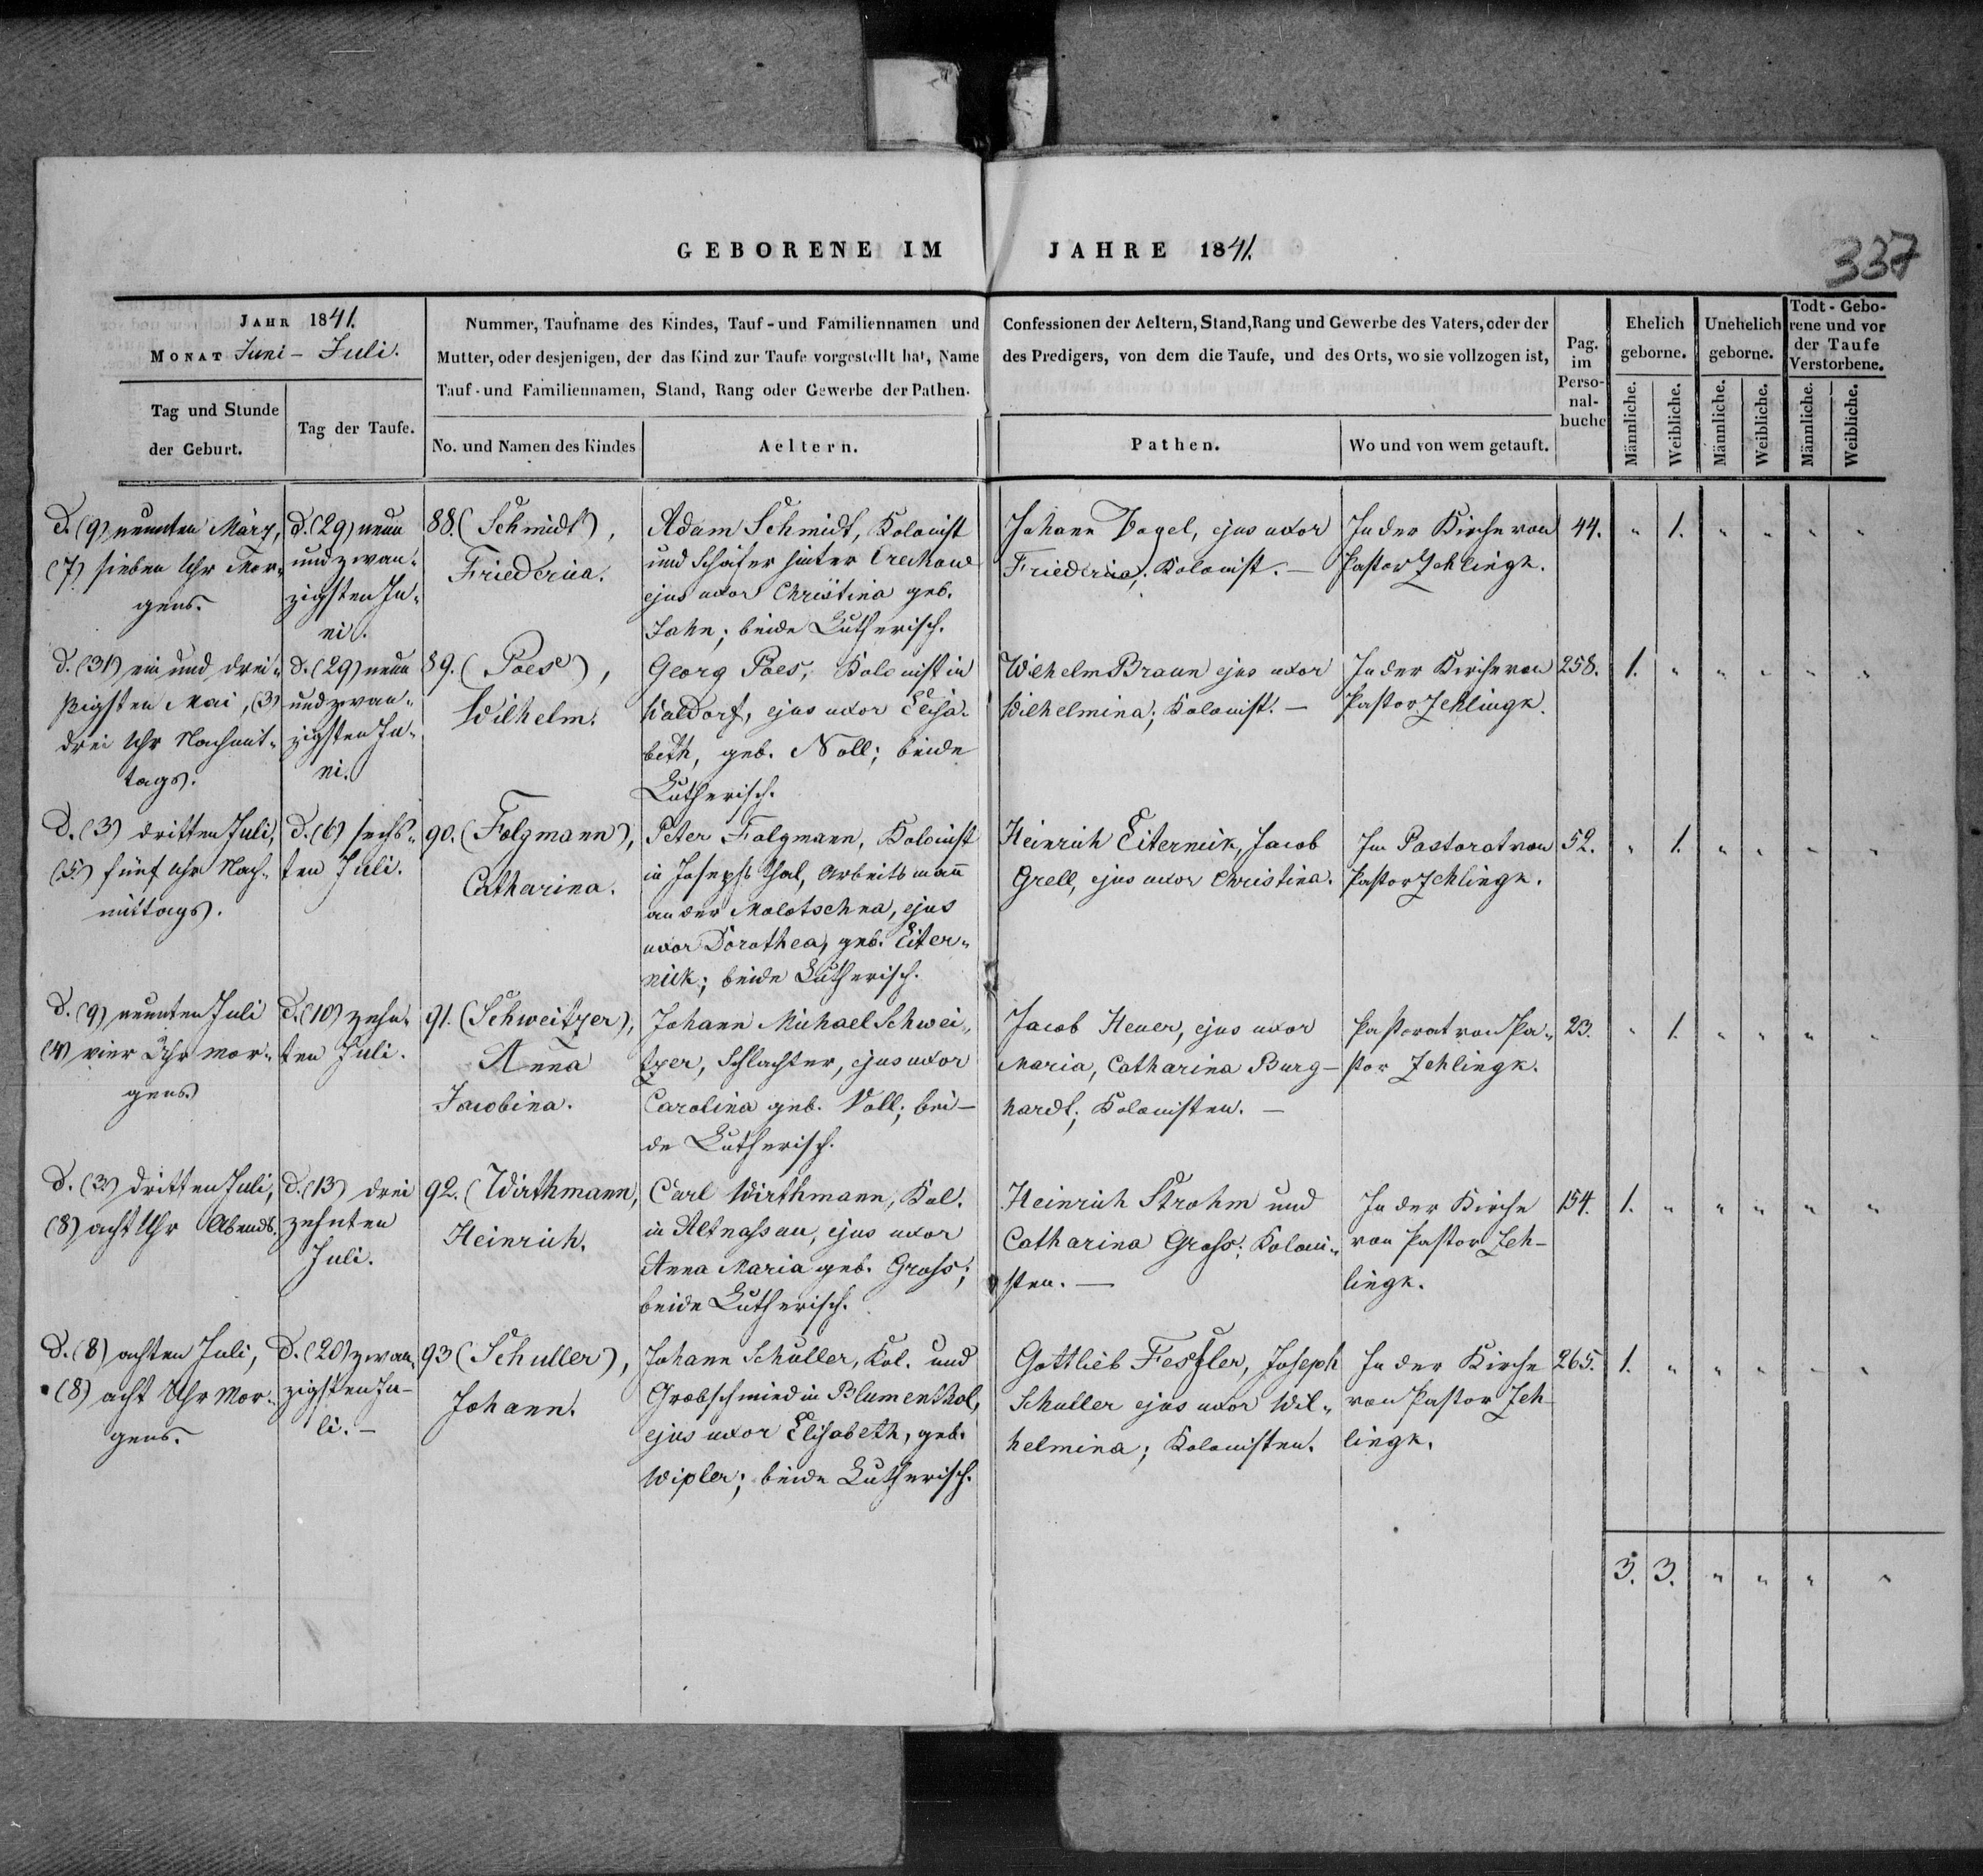 GEBORENE IM JAHRE 1841.
337
JAHR 1841.
MONAT Juni - Juli.
Tag und Stunde
der Geburt.
Tag der Taufe.
Nummer, Taufname des Kindes, Tauf- und Familiennamen und
Mutter, oder desjenigen, der das Kind zur Taufe vorgestellt hat, Name
Tauf- und Familiennamen, Stand, Rang oder Gewerbe der Pathen.
No. und Namen des Kindes
Aeltern.
Confessionen der Aeltern, Stand, Rang und Gewerbe des Vaters, oder der
des Predigers, von dem die Taufe, und des Orts, wo sie vollzogen ist,
Pathen.
Wo und von wem getauft.
Pag.
im
Perso-
nal-
buche
Ehelich
geborne.
Unehelich
geborne.
Todt-Gebo-
rene und vor
der Taufe
Verstorbene.
Männliche.
Weibliche.
Männliche.
Weibliche.
Männliche.
Weibliche.
D. (9) neunten März,
(7) sieben Uhr Mor-
gens.
d. (29) neun
und zwan-
zigsten Ju-
ni.
88. (Schmidt),
Friederica.
Adam Schmidt, Kolonist
und Schäfer hinter Orechow
ejus uxor Christina geb.
Jahn; beide Lutherisch.
Johann Vogel, ejus uxor
Friederica; Kolonist. —
In der Kirche von
Pastor Zehlingk.
44. " 1. " " " "
d. (31) ein und drei-
ßigsten Mai, (3)
drei Uhr Nachmit-
tags.
d. (29) neun
und zwan-
zigsten Ju-
ni.
89. (Poes),
Wilhelm.
Georg Poes, Kolonist in
Waldorf, ejus uxor Elisa-
beth, geb. Noll; beide
Lutherisch.
Wilhelm Braun ejus uxor
Wilhelmina; Kolonist. —
In der Kirche von
Pastor Zehlingk.
258. 1. " " " " "
D. (3) dritten Juli,
(5) fünf Uhr Nach-
mittags.
d. (6) sechs-
ten Juli.
90. (Folgmann),
Catharina.
Peter Folgmann, Kolonist
in Josephsthal, Arbeitsmañ
an der Molotschna, ejus
uxor Dorothea, geb. Eiter-
nick; beide Lutherisch.
Heinrich Eiternick, Jacob
Grell, ejus uxor Christina.
Im Pastorat von
Pastor Zehlingk.
52. " 1. " " " "
D. (9) neunten Juli
(4) vier Uhr mor-
gens.
d. (10) zehn-
ten Juli.
91. (Schweitzer),
Anna
Jacobina.
Johann Michael Schwei-
tzer, Schlachter, ejus uxor
Carolina geb. Voll; bei-
de Lutherisch.
Jacob Heuer, ejus uxor
Maria, Catharina Burg-
hardt; Kolonisten. —
Pastorat von Pa-
stor Zehlingk.
23. " 1. " " " "
D. (3) dritten Juli,
(8) acht Uhr Abends.
d. (13) drei
zehnten
Juli.
92. (Wirthmann,
Heinrich.
Carl Wirthmann, Kol.
in Altnassau, ejus uxor
Anna Maria geb. Gross;
beide Lutherisch.
Heinrich Strohm und
Catharina Gross; Koloni-
sten. —
In der Kirche
von Pastor Zeh-
lingk.
154. 1. " " " " "
D. (8) achten Juli,
(8) acht Uhr Mor-
gens.
D. (20) zwan-
zigsten Ju-
li. —
93 (Schuller),
Johann.
Johann Schuller, Kol. und
Grobschmied in Blumenthal,
ejus uxor Elisabeth, geb.
Wipler; beide Lutherisch.
Gottlieb Fessler, Joseph
Schuller ejus uxor Wil-
helmina; Kolonisten.
In der Kirche
von Pastor Zeh-
lingk.
265. 1. " " " " "
3. 3. " " " "